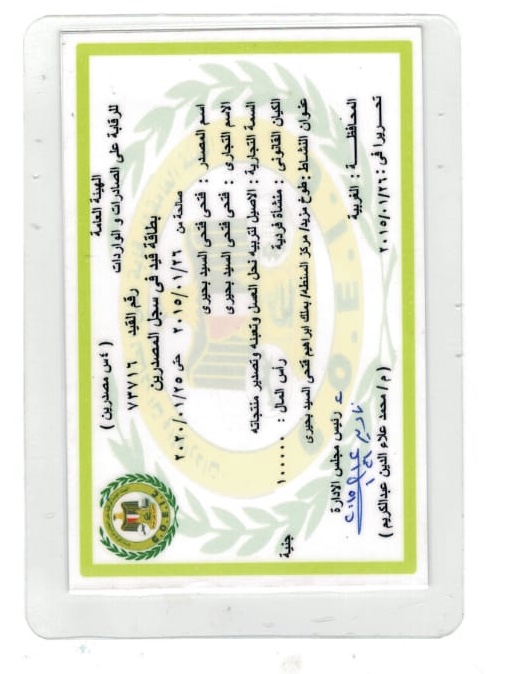 الهيئة العامة
للرقابة على الصادرات و الواردات
( ٤س مصدرين )
رقم القيد ٧٣٧١٦
بطاقة قيد فى سجل المصدرين
صالحة من ٢٠١٥/٠١/٢٦ حتى ٢٠٢٠/٠١/٢٥
اسم المصدر : فتحى فتحى السيد بحيرى
الاسم التجارى : فتحى فتحى السيد بحيرى
السمة التجارية : الاصيل لتربيه نحل العسل وتعبئه وتصدير منتجاته
الكيان القانونى : منشاة فردية رأس المال : ١٠٠٠٠٠ جنية
عنوان النشاط : طوخ مزيد/ مركز السنطه/ بملك ابراهيم فتحى السيد بحيرى
المحافظـــة : الغربية
تحـريرا فى : ٢٠١٥/٠١/٢٦
رئيس مجلس الادارة
( م / محمد علاء الدين عبدالكريم )
G.O.E.I.C